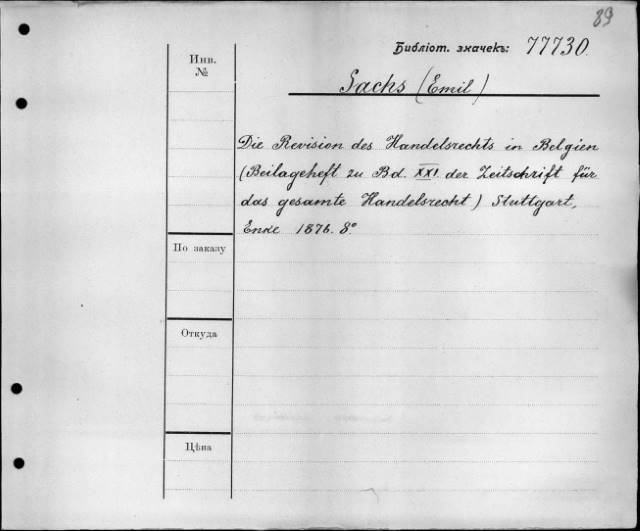 89
Библіот. значекъ: 77730.
Инв.
№
Sachs (Emil)
Die Revision des Handelsrechts in Belgien
(Beilageheft zu Bd. XXI. der Zeitschrift für
das gesamte Handelsrecht) Stuttgart,
Enke 1876. 8°.
По заказу
Откуда
Цѣна